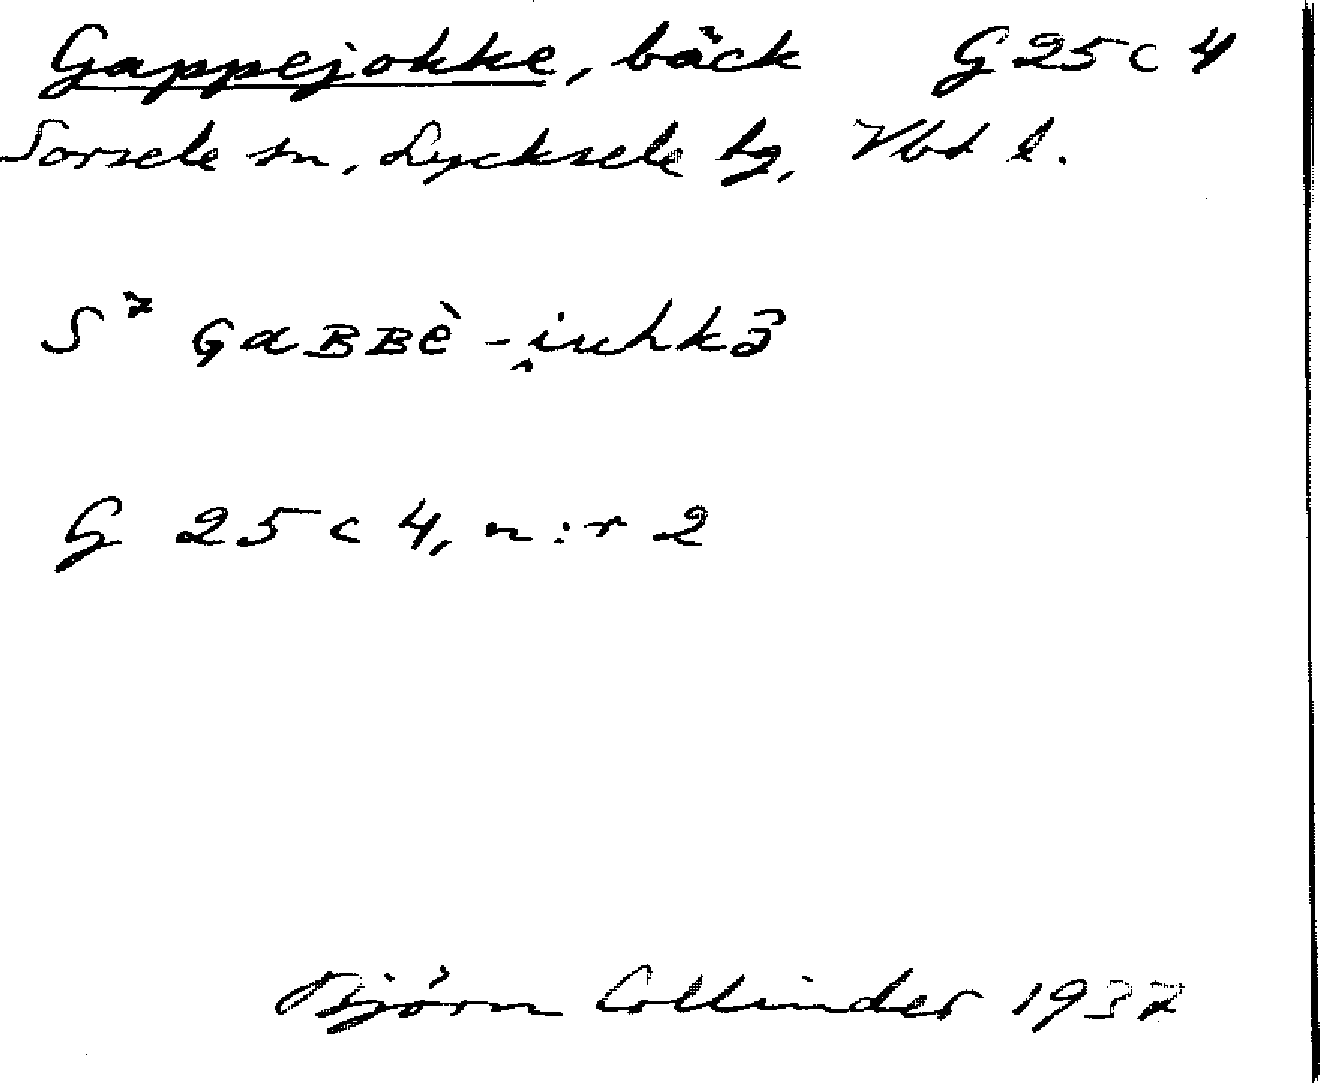 Gappejokke, bäck G 25 c 4
Sorsele sn, Lycksele lg, Vbd l.
S⁷ GɑBBè -i̭uhkə̄
G 25 c 4, n:r 2
Björn Collinder 1937